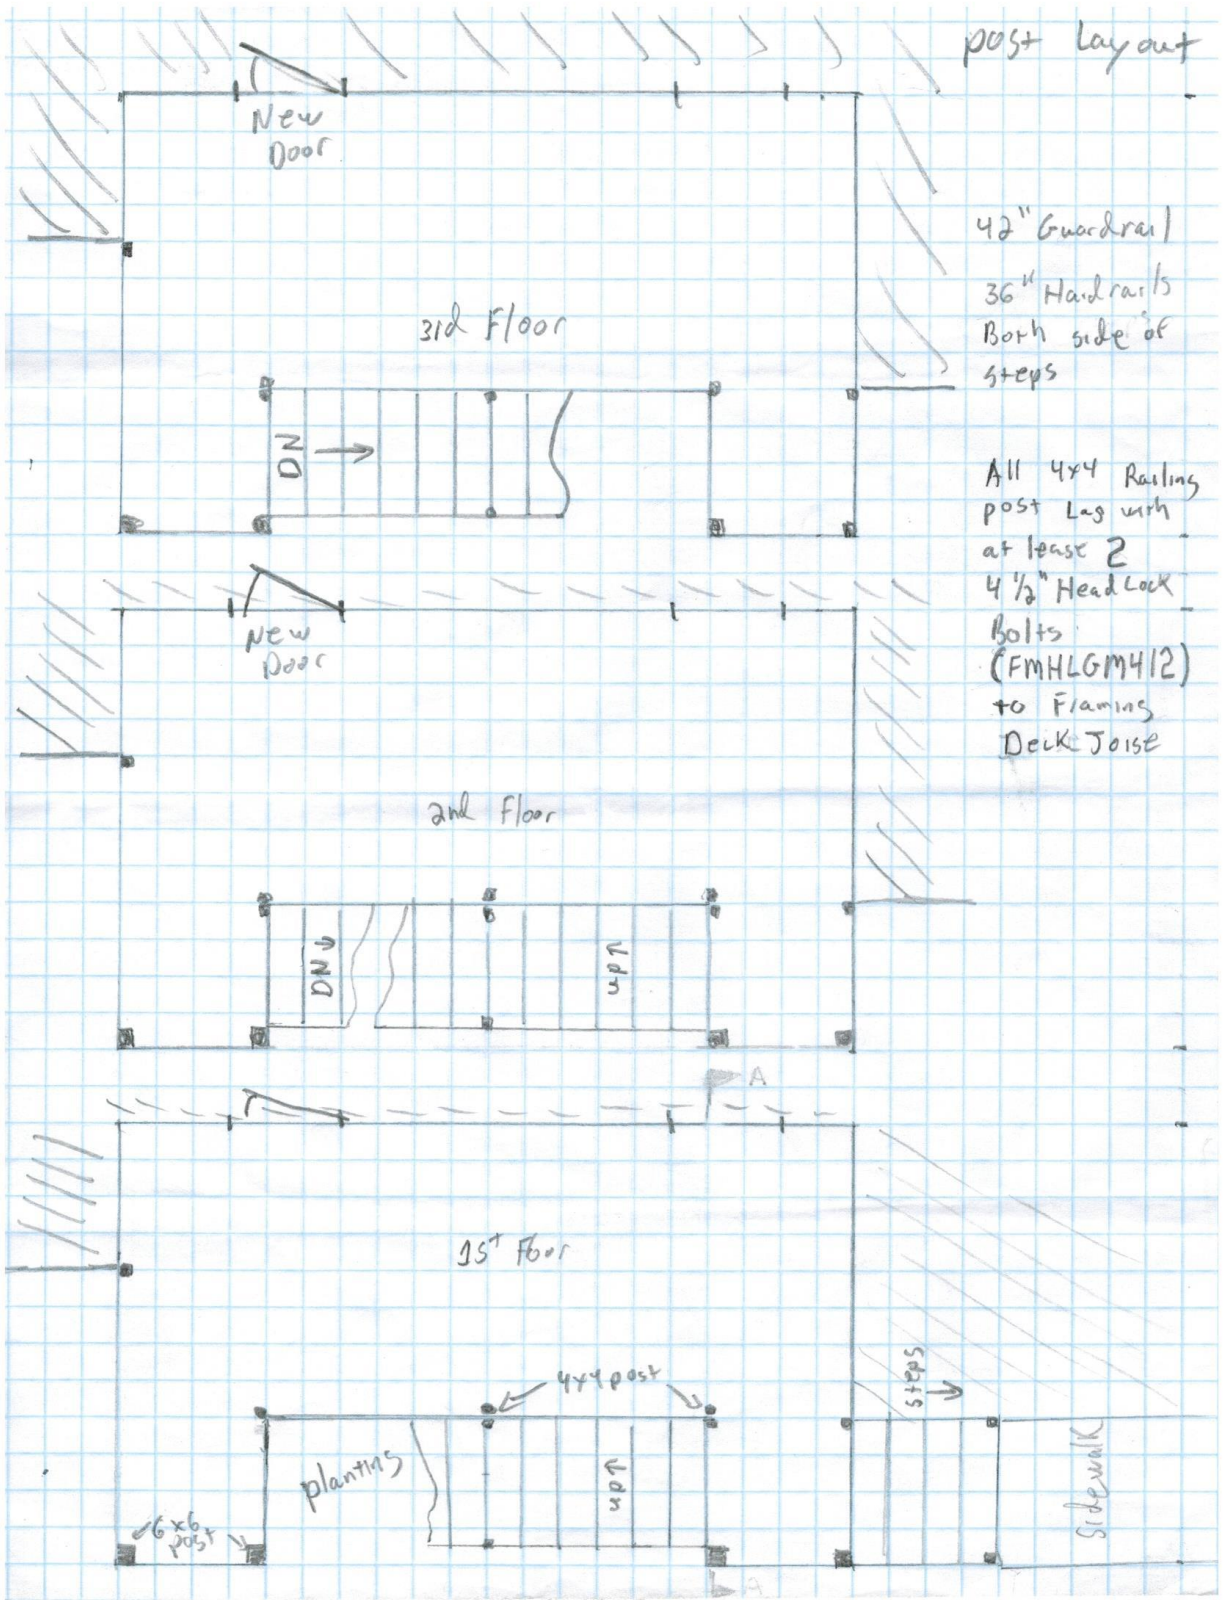 post Layout
New
Door
42" Guardrail
36" Haidrails
Both side of
steps
3rd Floor
DN →
All 4x4 Railing
post Lag with
at lease 2
4 1/2" Head Lock
Bolts
(FMHLGM412)
to Flaming
Deck Joise
New
Door
2nd Floor
DN ↓
up ↑
A
1st Foor
4x4 post
steps
↓
planting
up ↑
Sidewalk
6x6
post
A